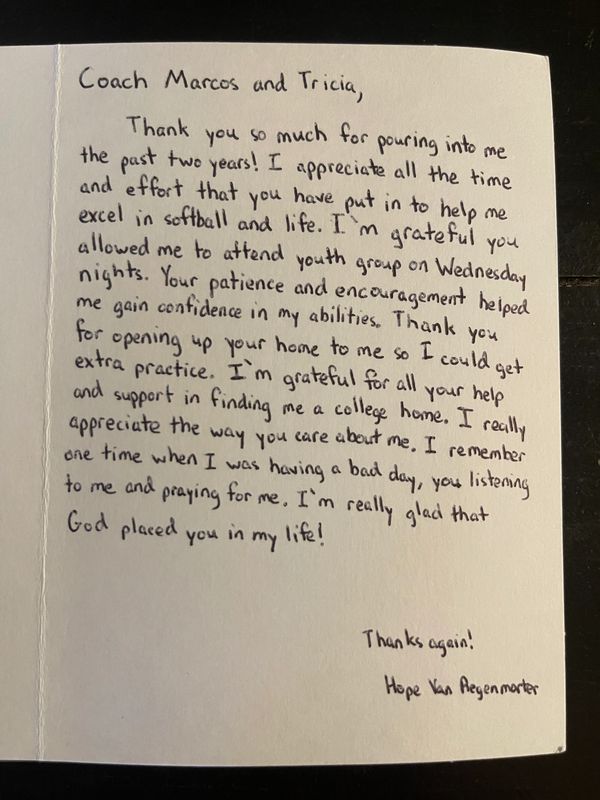 Coach Marcos and Tricia,
Thank you so much for pouring into me
the past two years! I appreciate all the time
and effort that you have put in to help me
excel in softball and life. I`m grateful you
allowed me to attend youth group on Wednesday
nights. Your patience and encouragement helped
me gain confidence in my abilities. Thank you
for opening up your home to me so I could get
extra practice. I`m grateful for all your help
and support in finding me a college home. I really
appreciate the way you care about me. I remember
one time when I was having a bad day, you listening
to me and praying for me. I`m really glad that
God placed you in my life!
Thanks again!
Hope Van Regenmorter